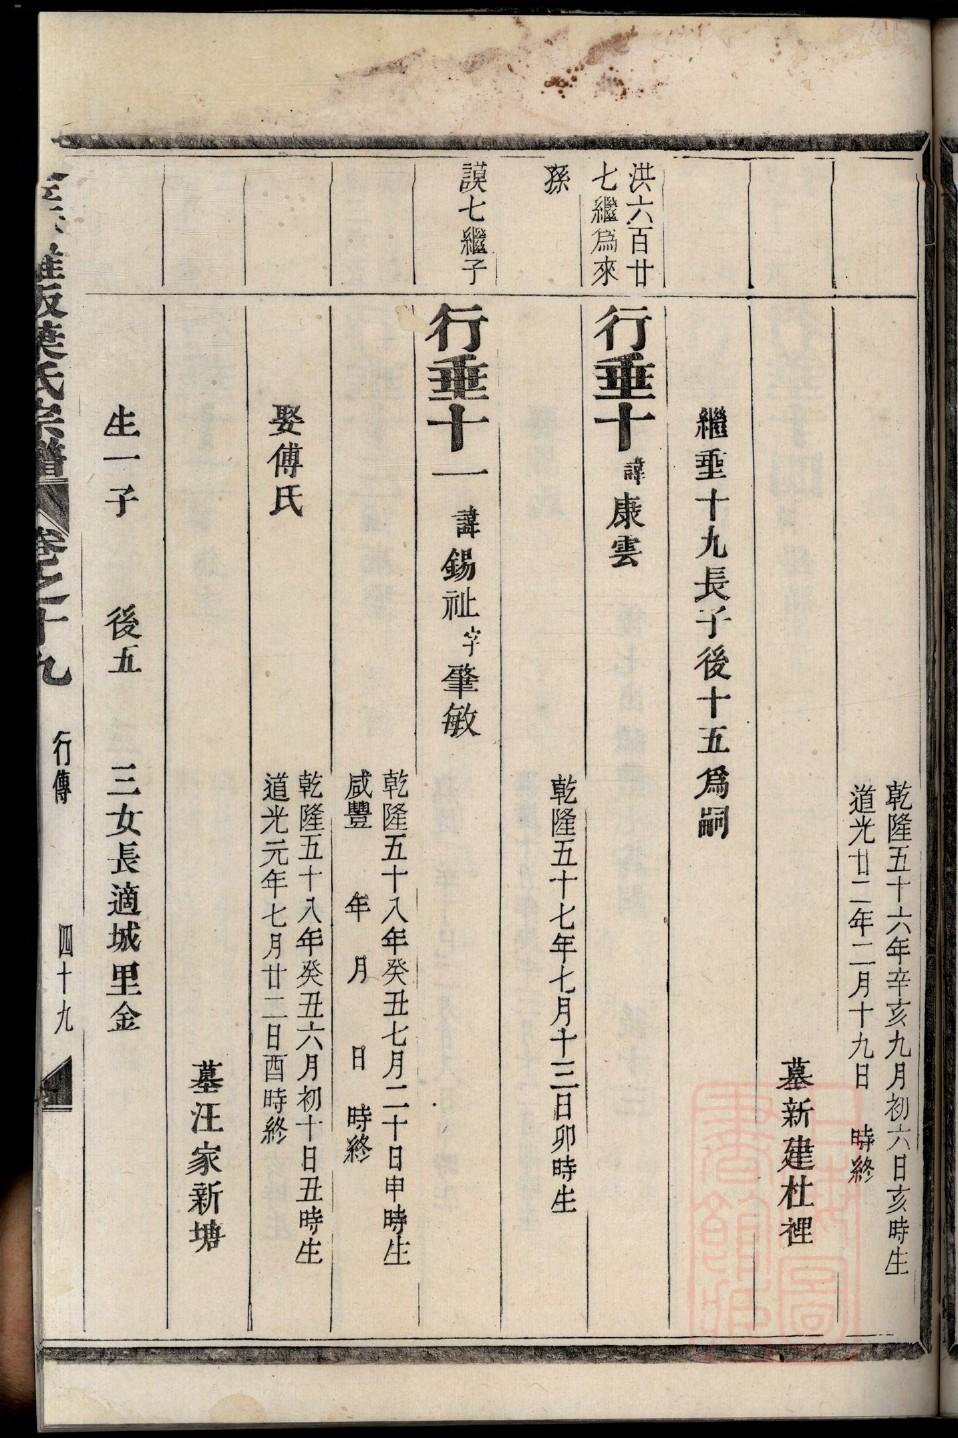 乾隆五十六年辛亥九月初六日亥時生
道光廿二年二月十九日 時終
墓新建杜裡
繼垂十九長子後十五爲嗣
洪六百廿
七繼爲來
孫
行垂十 諱康雲
乾隆五十七年七月十三日卯時生
謨七繼子
行垂十一 諱錫祉 字肇敏
乾隆五十八年癸丑七月二十日申時生
咸豐 年 月 日 時終
娶傅氏
乾隆五十八年癸丑六月初十日丑時生
道光元年七月廿二日酉時終
墓汪家新塘
生一子 後五 三女長適城里金
葉氏宗譜 卷之十九 行傳 四十九